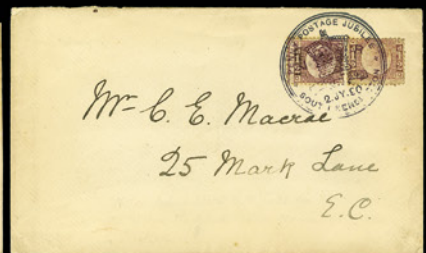 POSTAGE JUBILEE
2 JY.90
SOUTH KENSINGTON
Mr C. E. Macrae
25 Mark Lane
E.C.